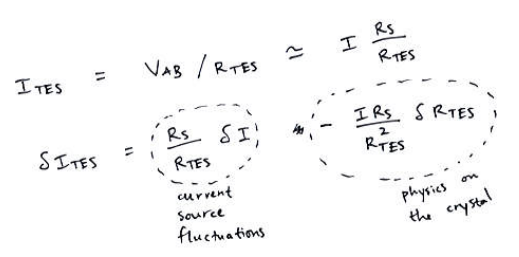 I_TES = V_AB / R_TES ≃ I R_S / R_TES
δI_TES = R_S / R_TES δI - I R_S / R_TES^2 δR_TES
current source fluctuations
physics on the crystal